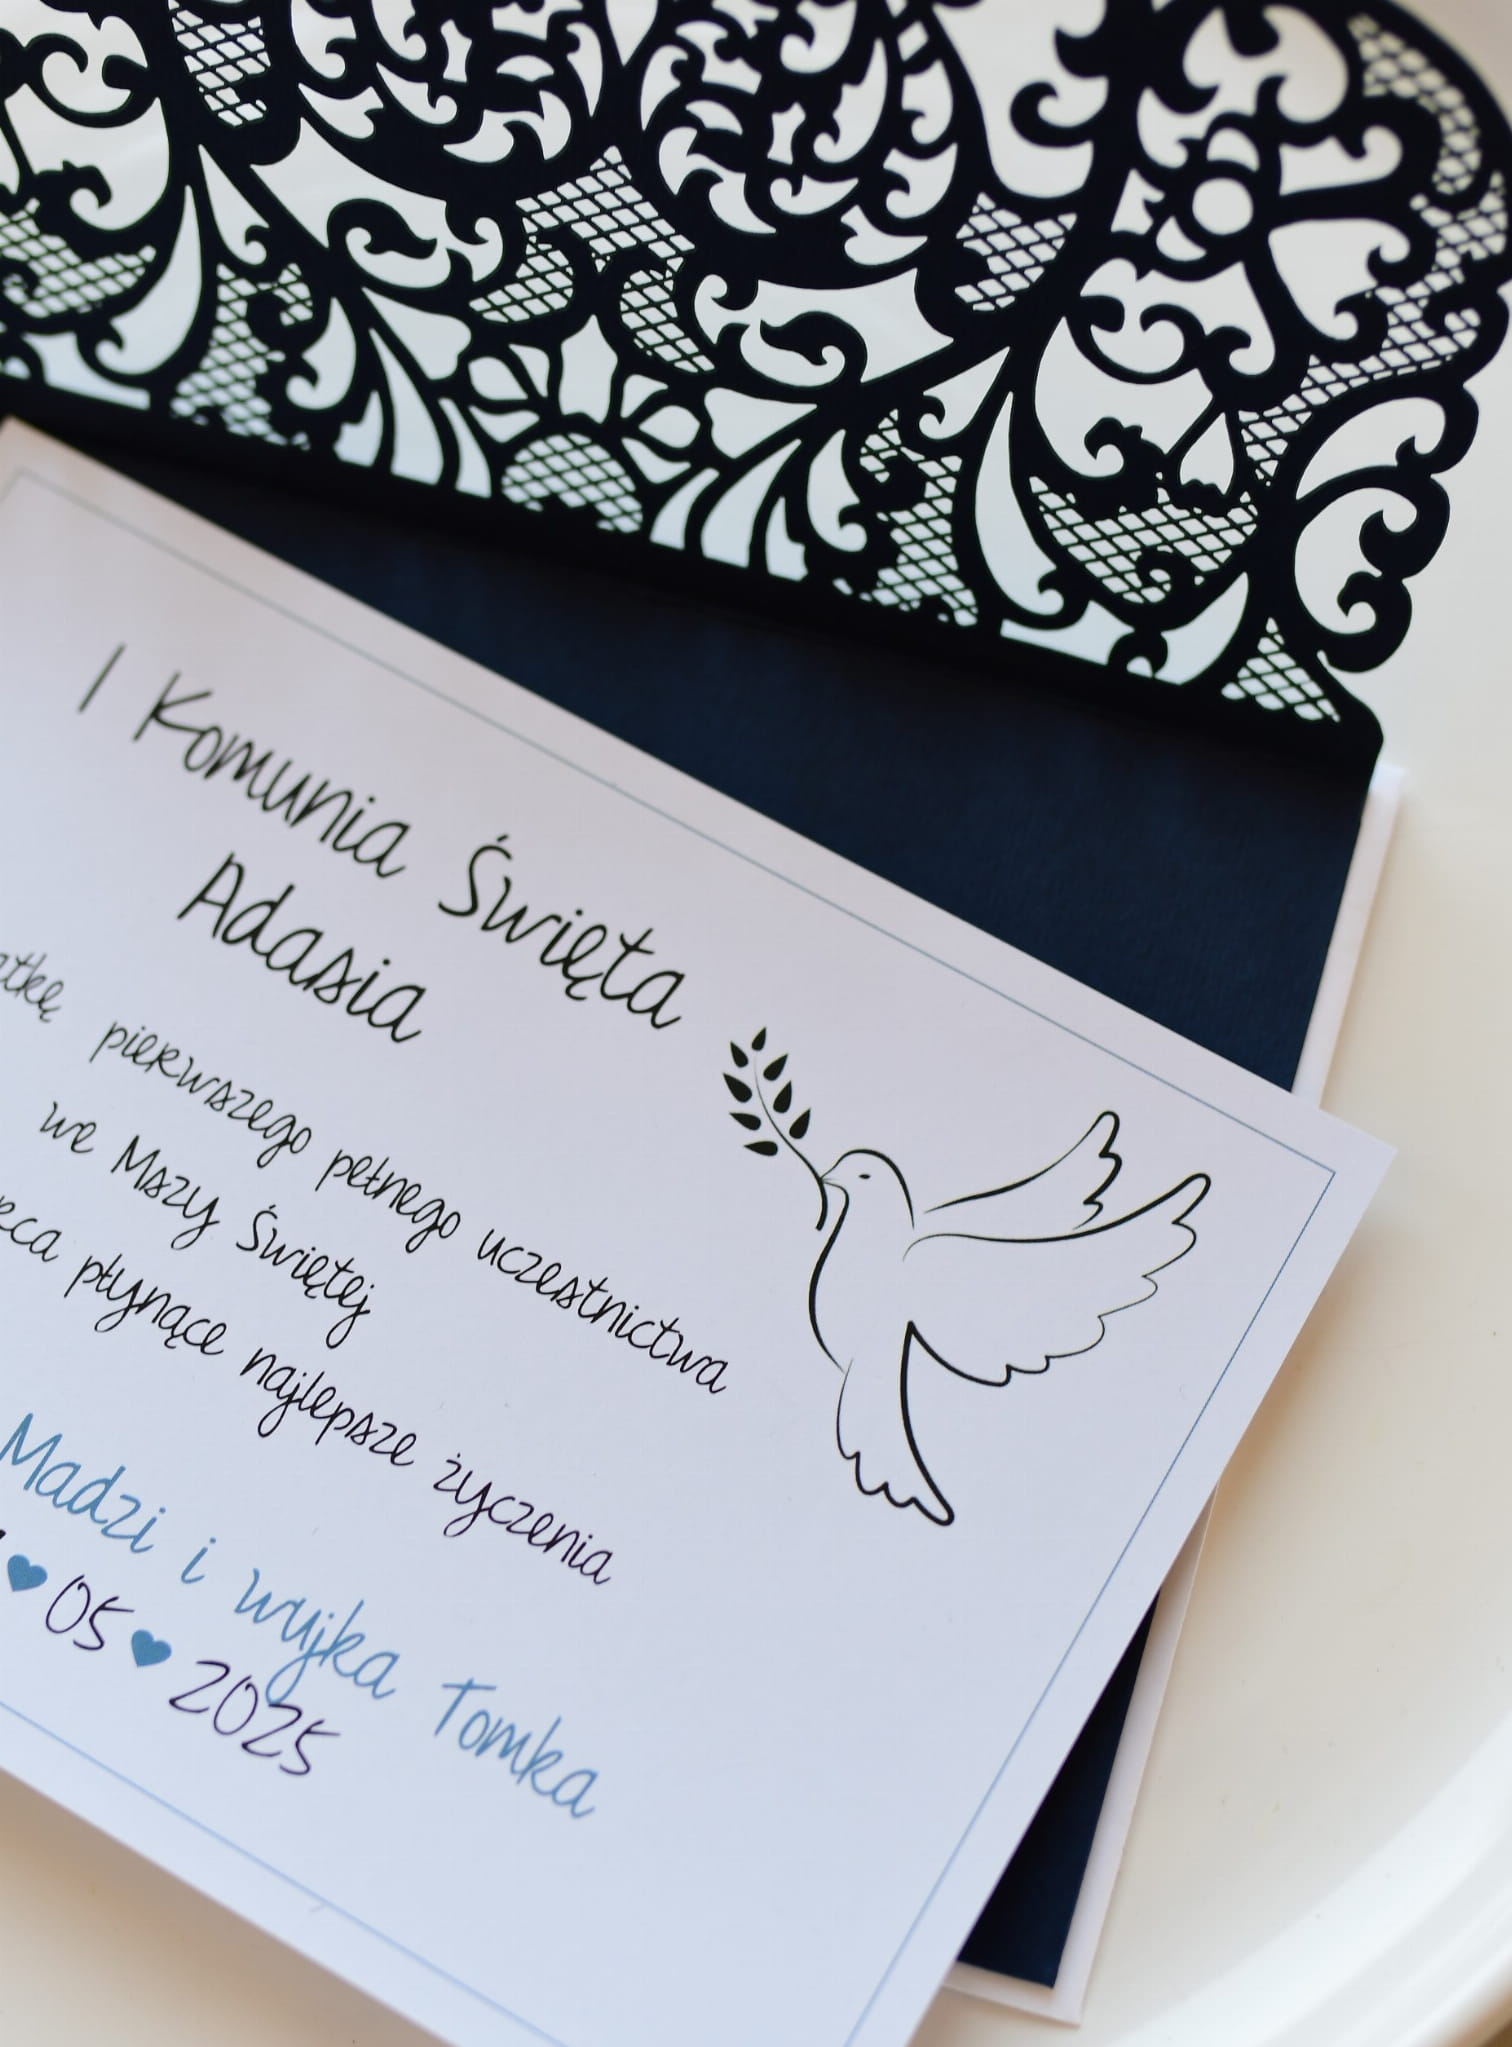 I Komunia Święta
Adasia
pierwszego pełnego uczestnictwa
we Mszy Świętej
płynące najlepsze życzenia
Madzi i wujka Tomka
♥ 05 ♥ 2025